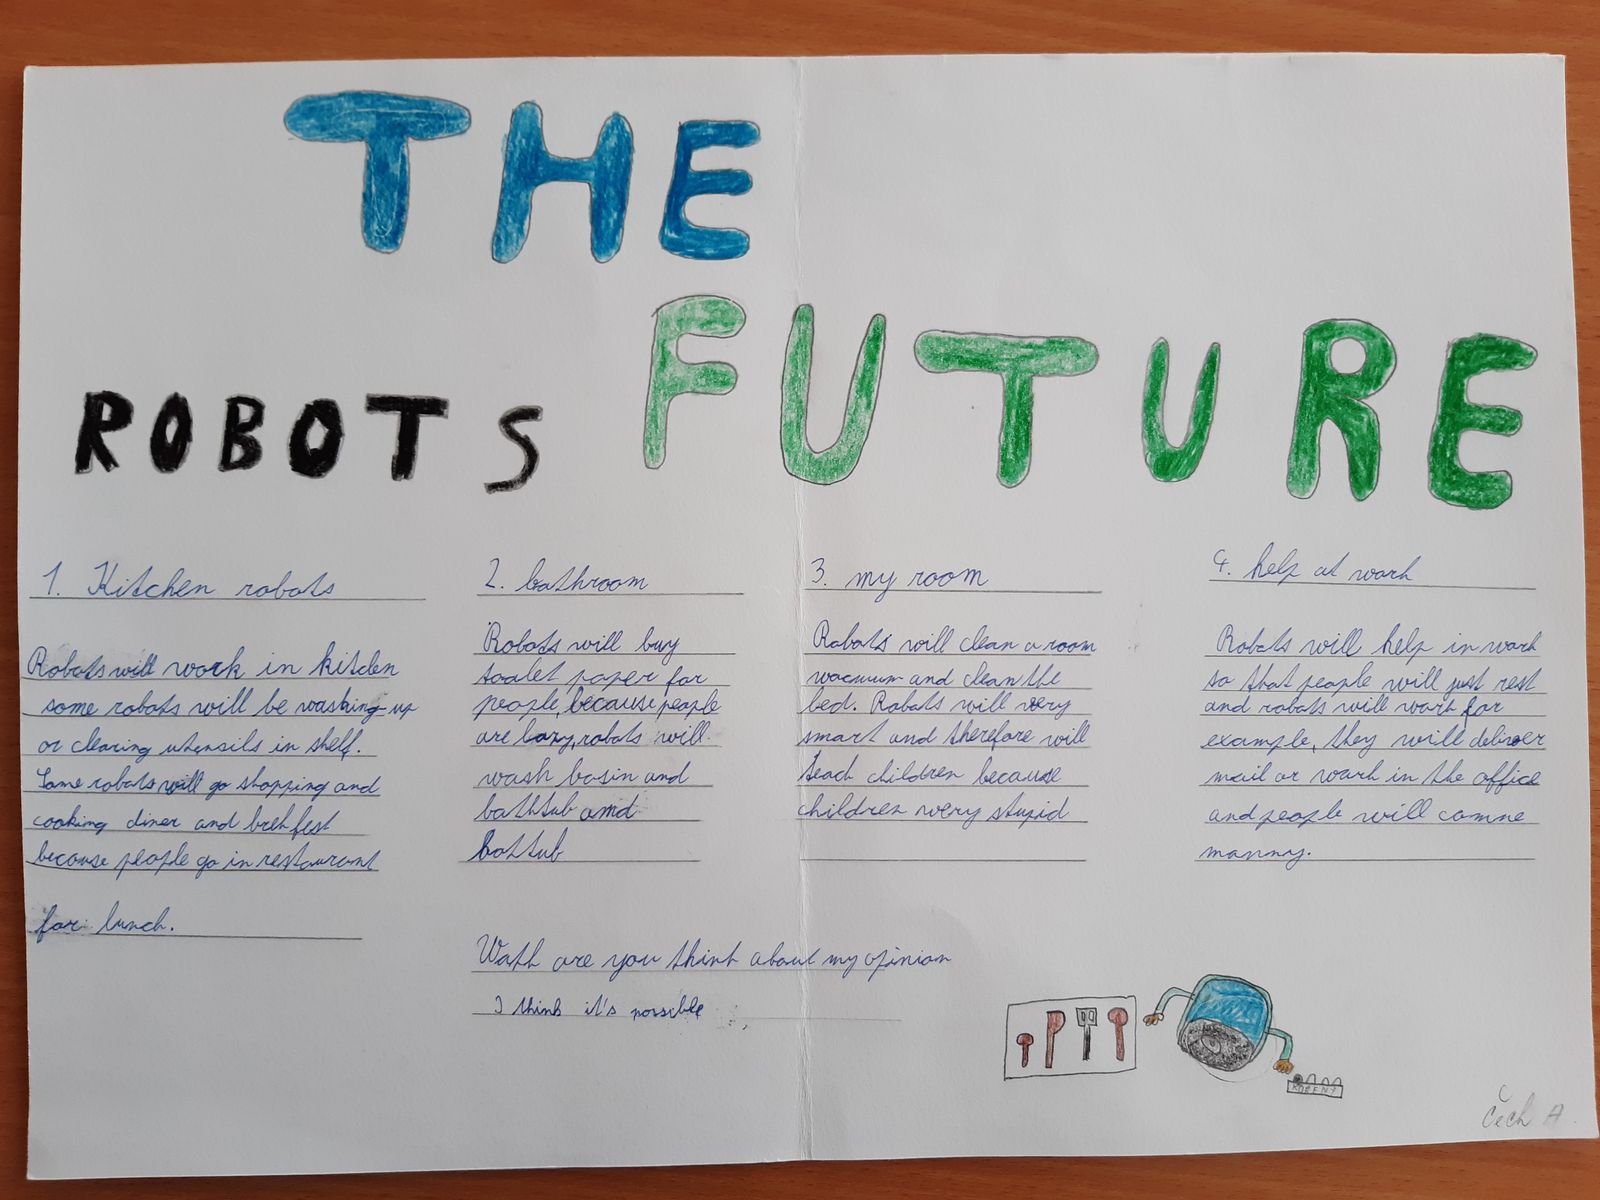 THE
FUTURE
ROBOTS
1. Kitchen robots
Robots will work in kitchen
some robots will be washing up
or clearing utensils in shelf.
Some robots will go shopping and
cooking diner and brekfest
because people go in restaurant
for lunch.
2. bathroom
Robots will buy
toalet paper for
people, because people
are lazy, robots will
wash basin and
bathtub and
battub
3. my room
Robots will clean a room
vacuum and clean the
bed. Robots will very
smart and therefore will
teach children because
children wery stupid
4. help at work
Robots will help in work
so that people will just rest
and robots will work for
example, they will deliver
mail or work in the office
and people will comne
manny.
Wath are you think about my opinion
I think it's possible
KOŘENÍ
Čech A.